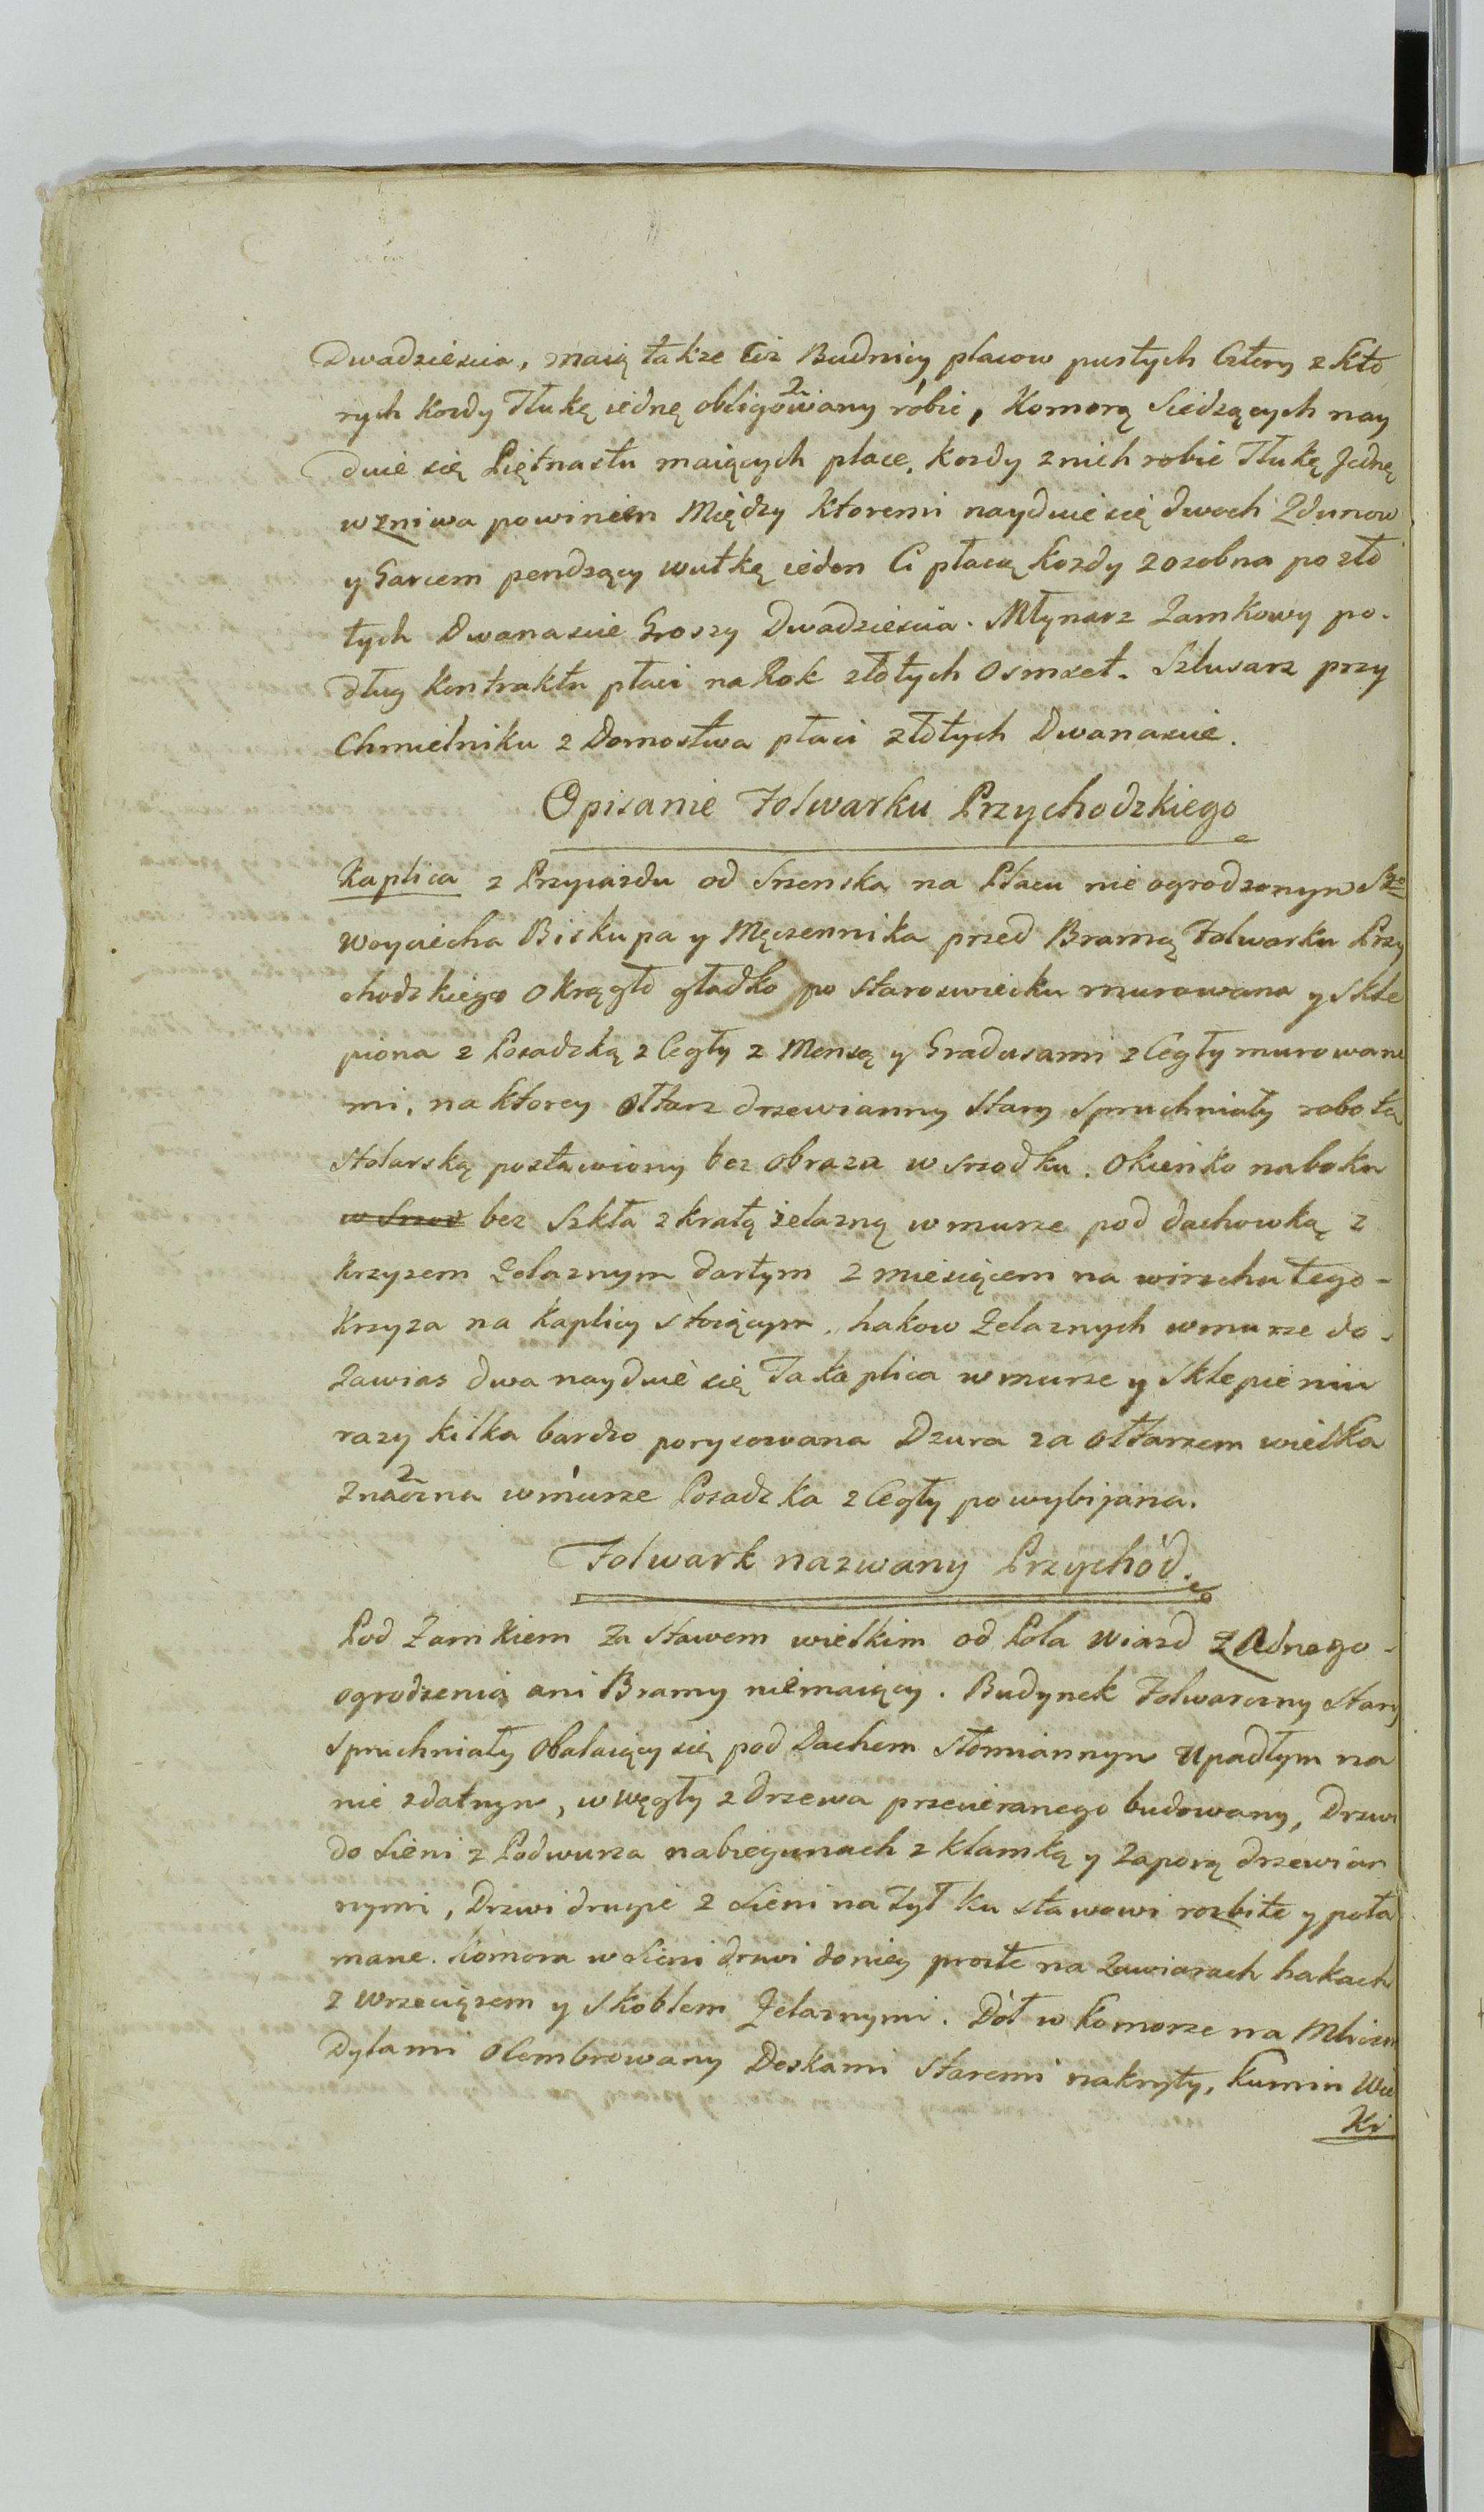 Dwadziescia, maią takze Ciz Budnicy placow pustych Cztery z kto
rych kozdy Tłukę iednę obligowany robic, Komorą Siedzących nay
duie się Piętnastu maiących place, kozdy z nich robic Tłukę Jednę
w zniwa powinien Między ktoremi nayduie się dwoch Zdunow
y Garcem pendzący wutkę ieden Ci płacą kozdy z osobna po zło
tych Dwanascie Groszy Dwadziescia. Młynarz Zamkowy po-
dług kontraktu płaci na Rok złotych Osmset. Szlusarz przy
Chmielniku z Domostwa płaci złotych Dwanascie.
Opisanie Folwarku Przychodzkiego
Kaplica z Przyiazdu od Szenska na Placu nie ogrodzonym Sgo
Woyciecha Biskupa y Męczennika przed Bramą Folwarku Przy
chodzkiego okrągło gładko po staroswiecku murowana y skle
piona z Posadzką z Cegły z Mensą y Gradusami z Cegły murowane
mi, na ktorey ołtarz drzewianny Stary Spruchniały robotą
stolarską postawiony bez obrazu w srzodku. Okienko na boku
w Srzod bez Szkła z kratą żelazną w murze pod dachowką z
krzyzem Zelaznym dartym z miesiącem na wirzchu tego-
krzyza na kaplicy stoiącym, hakow Zelaznych w murze do-
Zawias dwa nayduie się Ta kaplica w murze y Sklepieniu
razy kilka bardzo porysowana Dzura za ołtarzem wielka
znaczna w murze Posadzka z Cegły powybijana.
Folwark nazwany Przychód.
Pod Zamkiem za stawem wielkim od Pola Wiazd Zadnego-
ogrodzenia ani Bramy niemaiący. Budynek Folwarczny Stary
Spruchniały Obalaiący się pod Dachem słomiannym Upadłym na
nic zdatnym, w węgły z drzewa przecieranego budowany, Drzwi
do Sieni z Podwurza na biegunach z klamką y Zaporą drzewian
nymi, Drzwi drugie z Sieni na Tył ku stawowi rozbite y poła
mane. Komora w Sieni drzwi do niey proste na Zawiasach hakach
z wrzeciązem y Skoblem Zelaznymi. Dół w komorze na Mliczn
Dylami Ocembrowany Deskami Staremi nakryty, Kumin Wie
ki